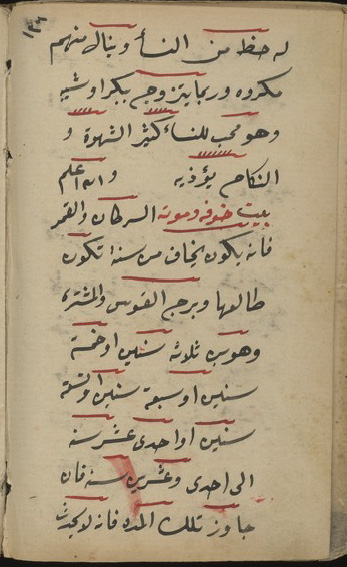 ١٣٤
له حظ من النسأ وينال منهم
مكروه وربما يتزوج بكرا و
وهو محب للنسأ كثير الشهوة و
النكاح يؤذيه والله اعلم
بيت خوفه وموته السرطان والقمر
فانه يكون يخاف من سنة تكون
طالعها وبرج القوس والمشترى
وهو ثلاثة سنين او خمسة
سنين او سبعة سنين او تسعة
سنين او احدى عشر سنة
الى احدى وعشرين سنة فان
جاوز تلك المده فانه لا يحدث